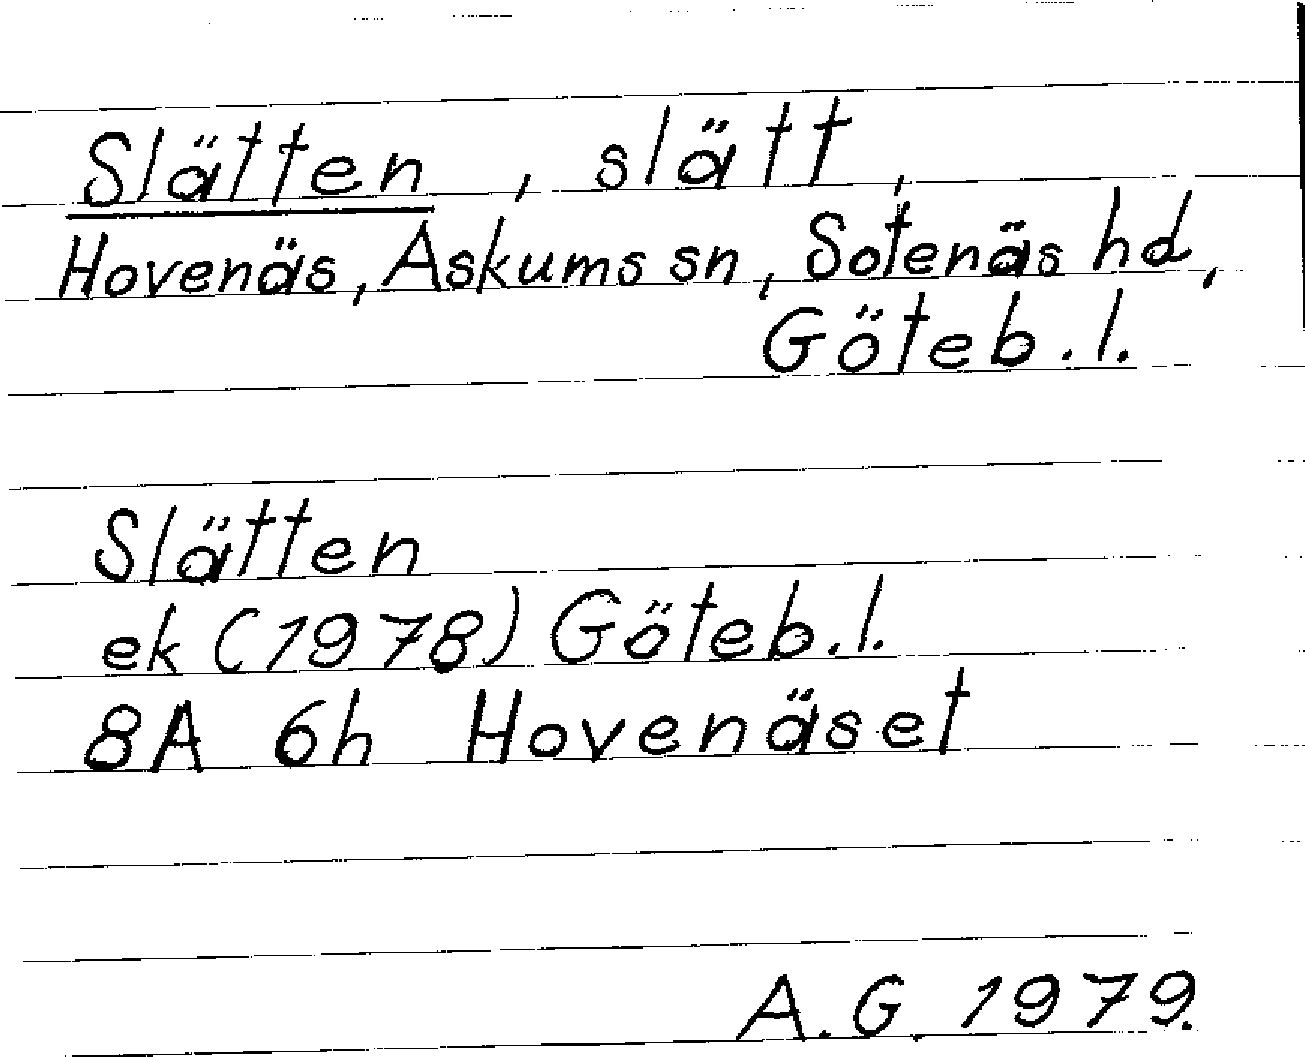 Slätten, slätt,
Hovenäs, Askums sn, Sotenäs hd,
Göteb. l.
Slätten
ek (1978) Göteb. l.
8A 6h Hovenäset
A. G. 1979.